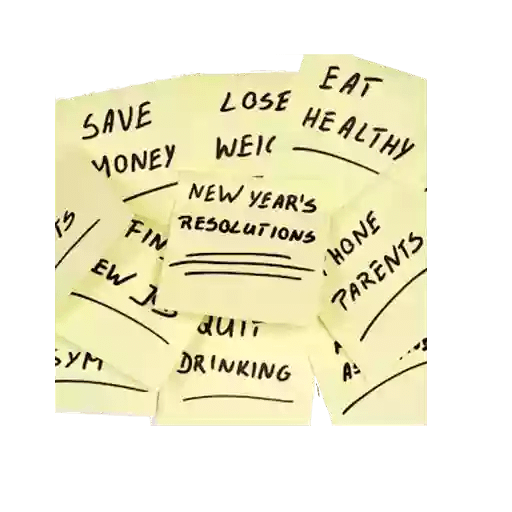 SAVE
MONEY
LOSE
WEIG
EAT
HEALTHY
NEW YEAR'S
RESOLUTIONS
FIN
EW JO
HONE
PARENTS
GYM
QUIT
DRINKING